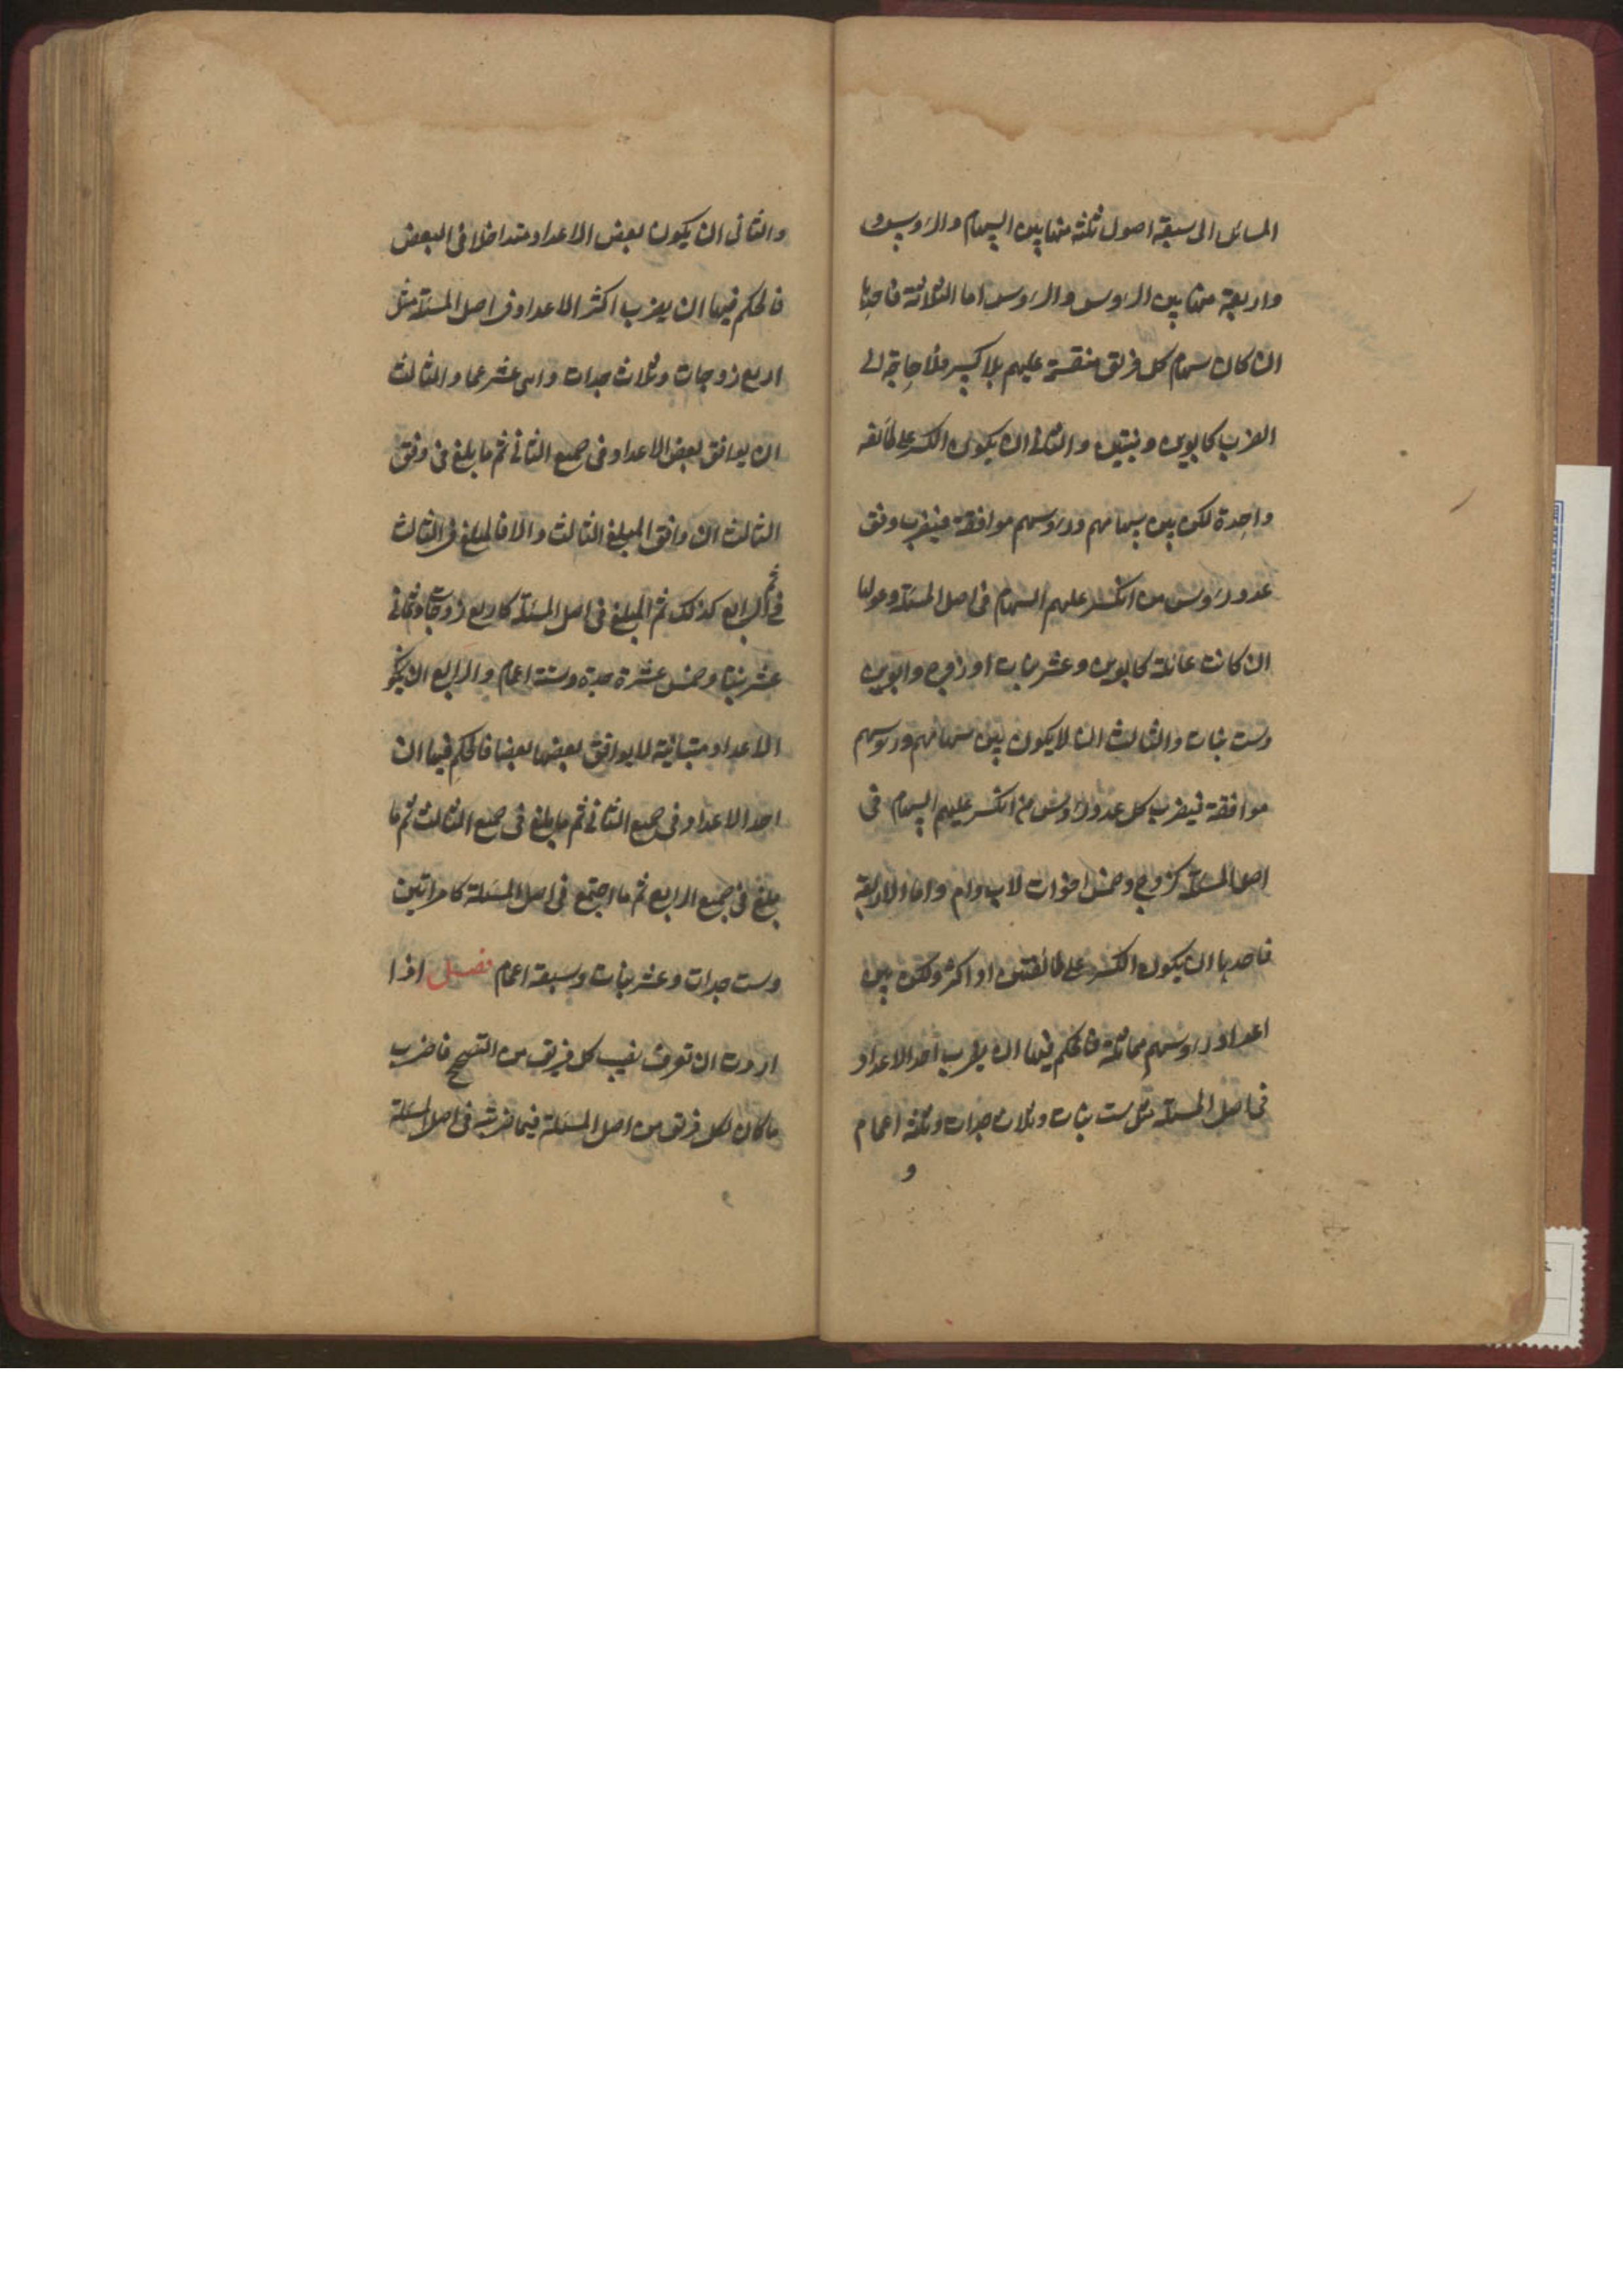 المسائل الى سبعة اصول ثلثة منها بين السهام والرؤس و
واربعة منها بين الرؤس والرؤس اما الثلاثة فاحدها
ان كان سهام كل فريق منقسمة عليهم بلا كسر فلا حاجة الى
الضرب كابوين وبنتين والثانى ان يكون الكسر على طائفه
واحدة لكن بين سهامهم ورؤسهم موافقة فيضرب وفق
عدد رؤس من انكسر عليهم السهام فى اصل المسئلة وعولها
ان كانت عائلة كابوين وعشر بنات او زوج وابوين
وست بنات والثالث ان لا يكون بين سهامهم ورؤسهم
موافقة فيضرب كل عدد رؤس من انكسر عليهم السهام فى
اصل المسئلة كزوج وخمس اخوات لاب وام واما الاربعة
فاحدها ان يكون الكسر على طائفتين او اكثر ولكن بين
اعداد رؤسهم مماثلة فالحكم فيها ان يضرب احد الاعداد
فى اصل المسئلة مثل ست بنات وثلاث جدات وثلثة اعمام
و
والثانى ان يكون بعض الاعداد متداخلا فى البعض
فالحكم فيها ان يضرب اكثر الاعداد فى اصل المسئلة مثل
اربع زوجات وثلاث جدات واثنى عشر عما والثالث
ان يوافق بعض الاعداد فى جميع الثانى ثم ما بلغ فى وفق
الثالث ان وافق المبلغ الثالث والا فالمبلغ فى الثالث
ثم فى الرابع كذلك ثم المبلغ فى اصل المسئلة كاربع زوجات وثمانى
عشر بنتا وخمس عشرة جدة وستة اعمام والرابع ان يكون
الاعداد متباينة لا يوافق بعضها بعضا فالحكم فيها ان
احد الاعداد فى جميع الثانى ثم ما بلغ فى جميع الثالث ثم ما
بلغ فى جميع الرابع ثم ما اجتمع فى اصل المسئلة كامراتين
وست جدات وعشر بنات وسبعة اعمام فصل اذا
اردت ان تعرف نصيب كل فريق من التصحيح فاضرب
ما كان لكل فريق من اصل المسئلة فيما ضربته فى اصل المسئلة